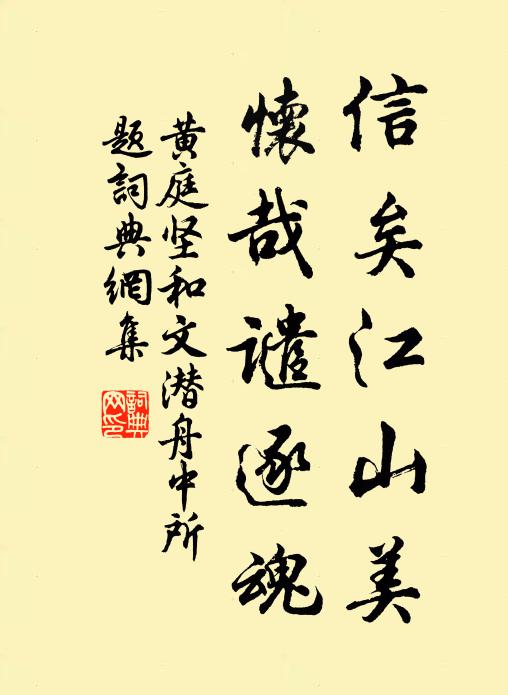 信矣江山美
懷哉譴逐魂
黄庭坚和文潜舟中所
题詞典網集
詞典网印